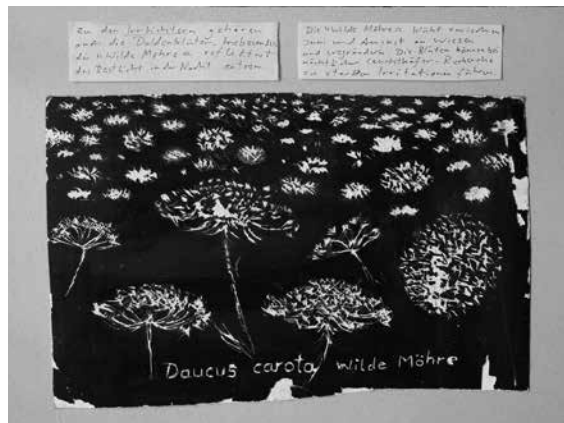 Zu den Irrlichtern gehören
auch die Doldenblüten, insbesondere
die Wilde Möhre reflektiert
das Restlicht in der Nacht extrem
Die Wilde Möhre blüht zwischen
Juni und August an Wiesen
und Wegrändern. Die Blüten können bei
nächtlicher Leuchtkäfer-Recherche
zu starken Irritationen führen
Daucus carota Wilde Möhre